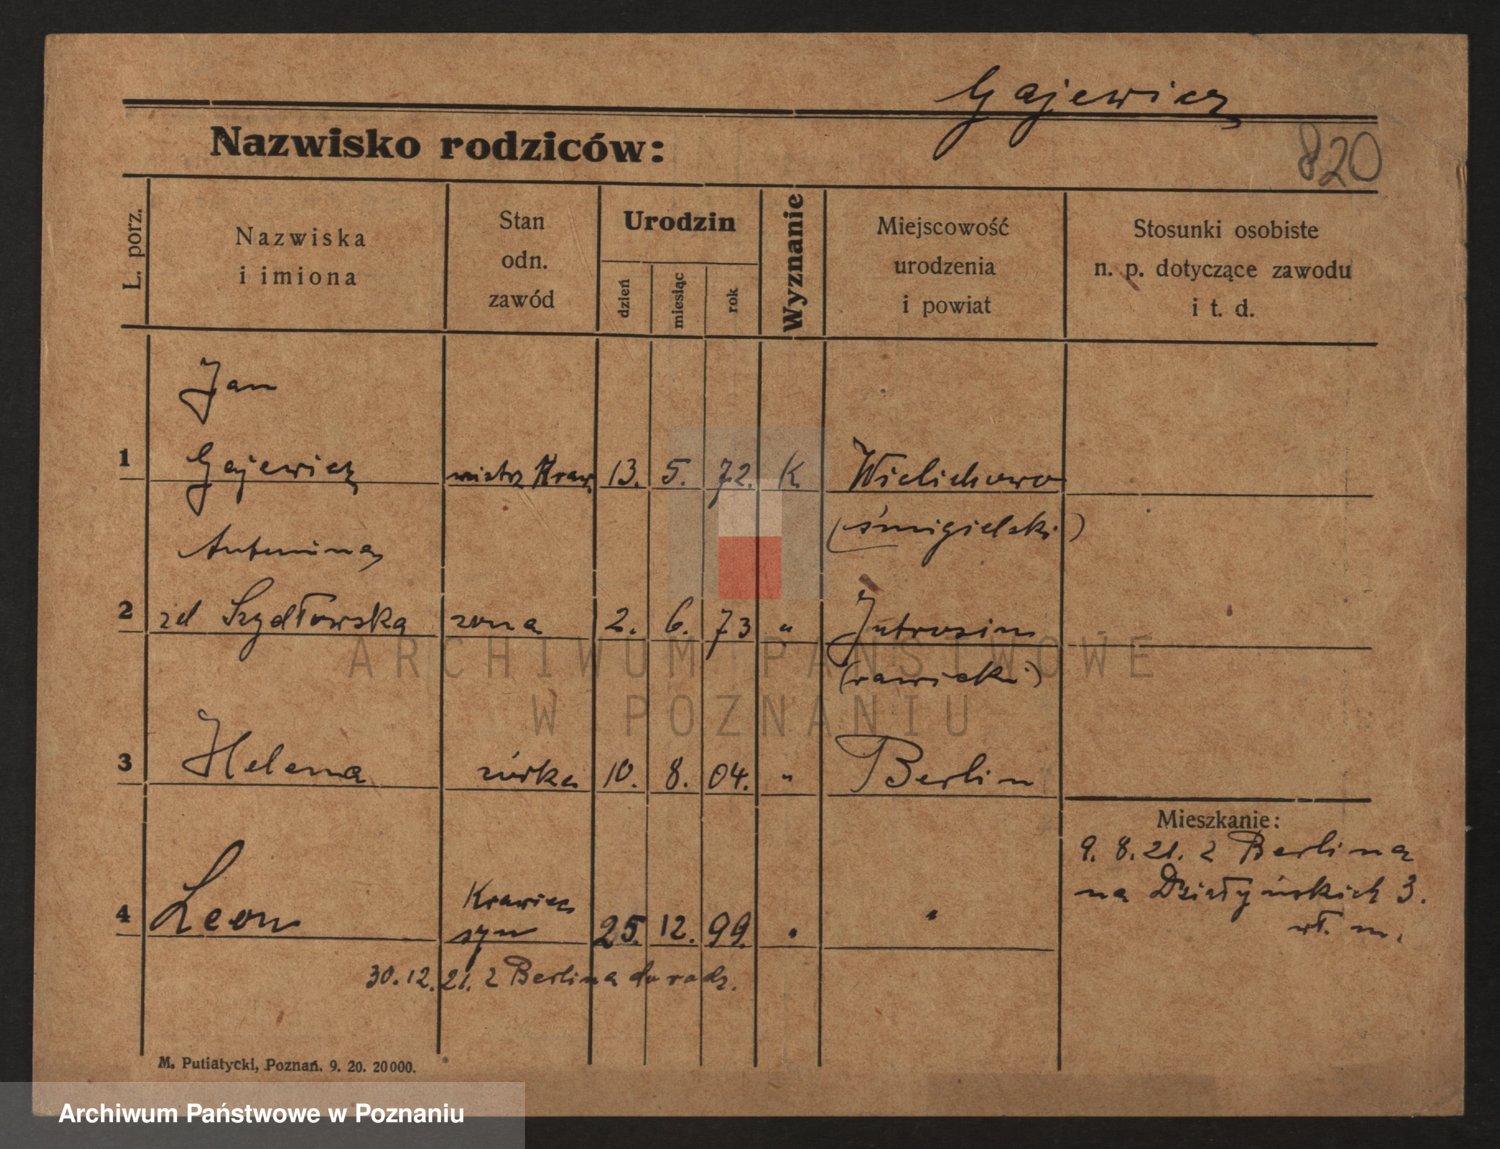 Gajewicz
820
Nazwisko rodziców:
L. porz.
Nazwiska
i imiona
Stan
odn.
zawód
Urodzin
dzień
miesiąc
rok
Wyznanie
Miejscowość
urodzenia
i powiat
Stosunki osobiste
n. p. dotyczące zawodu
i t. d.
Jan
1 Gajewicz mistrz Kraw. 13. 5. 72. K Wielichowo
(śmigielski)
Antonina
2 zd Szydłowska zona 2. 6. 73 " Jutrosin
(rawicki)
3 Helena córka 10. 8. 04. " Berlin
Mieszkanie:
9. 8. 21. z Berlina
na Działyńskich 3.
wł. m.
Krawiec
4 Leon syn 25. 12. 99. " "
30.12.21. z Berlina do rodz.
M. Putiatycki, Poznań. 9. 20. 20000.
ARCHIWUM PAŃSTWOWE
W POZNANIU
Archiwum Państwowe w Poznaniu